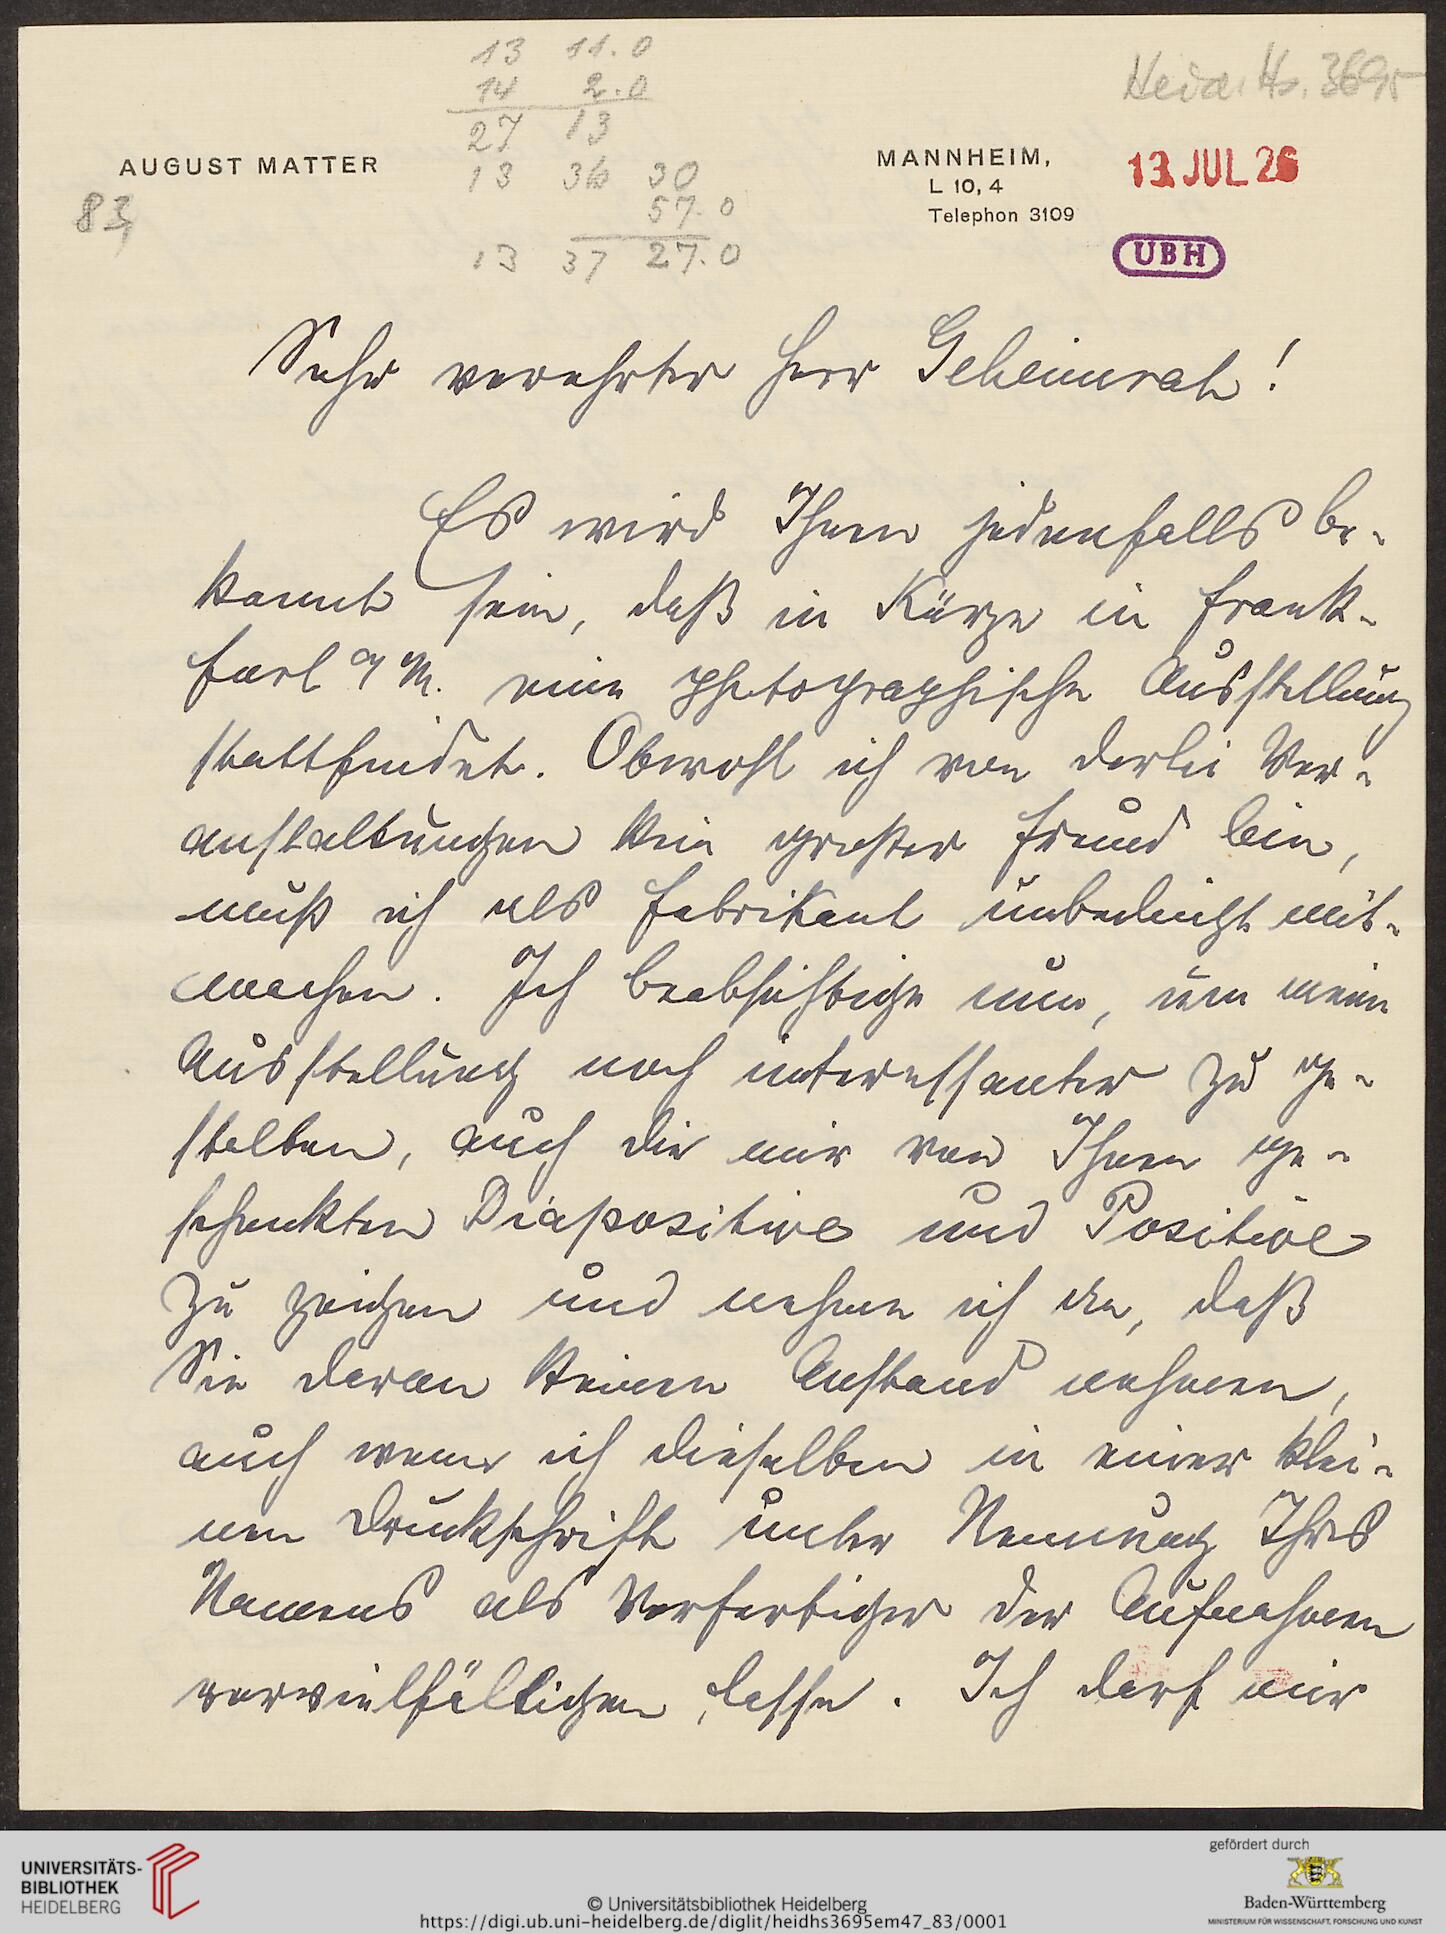 13 11.0
14 2.0
27 13
13 36 30
57.0
13 37 27.0
Heid. Hs. 3695
AUGUST MATTER
83,
MANNHEIM,
L 10, 4
Telephon 3109
13. JUL 26
UBH
Sehr verehrter Herr Geheimrat!
Es wird Ihnen jedenfalls be-
kannt sein, daß in Kürze in Frank-
furt a/M. eine photographische Ausstellung
stattfindet. Obwohl ich von derlei Ver-
anstaltungen kein großer Freund bin,
muß ich als Fabrikant unbedingt mit-
machen. Ich beabsichtige nun, um meine
Ausstellung noch interessanter zu ge-
stalten, auch die mir von Ihnen ge-
schenkten Diapositive und Positive
zu zeigen und nehme ich an, daß
Sie daran keinen Anstand nehmen,
auch wenn ich dieselben in einer klei-
nen Druckschrift unter Nennung Ihres
Namens als Verfertiger der Aufnahmen
vervielfältigen lasse. Ich darf mir
UNIVERSITÄTS-
BIBLIOTHEK
HEIDELBERG
© Universitätsbibliothek Heidelberg
https://digi.ub.uni-heidelberg.de/diglit/heidhs3695em47_83/0001
gefördert durch
Baden-Württemberg
MINISTERIUM FÜR WISSENSCHAFT, FORSCHUNG UND KUNST